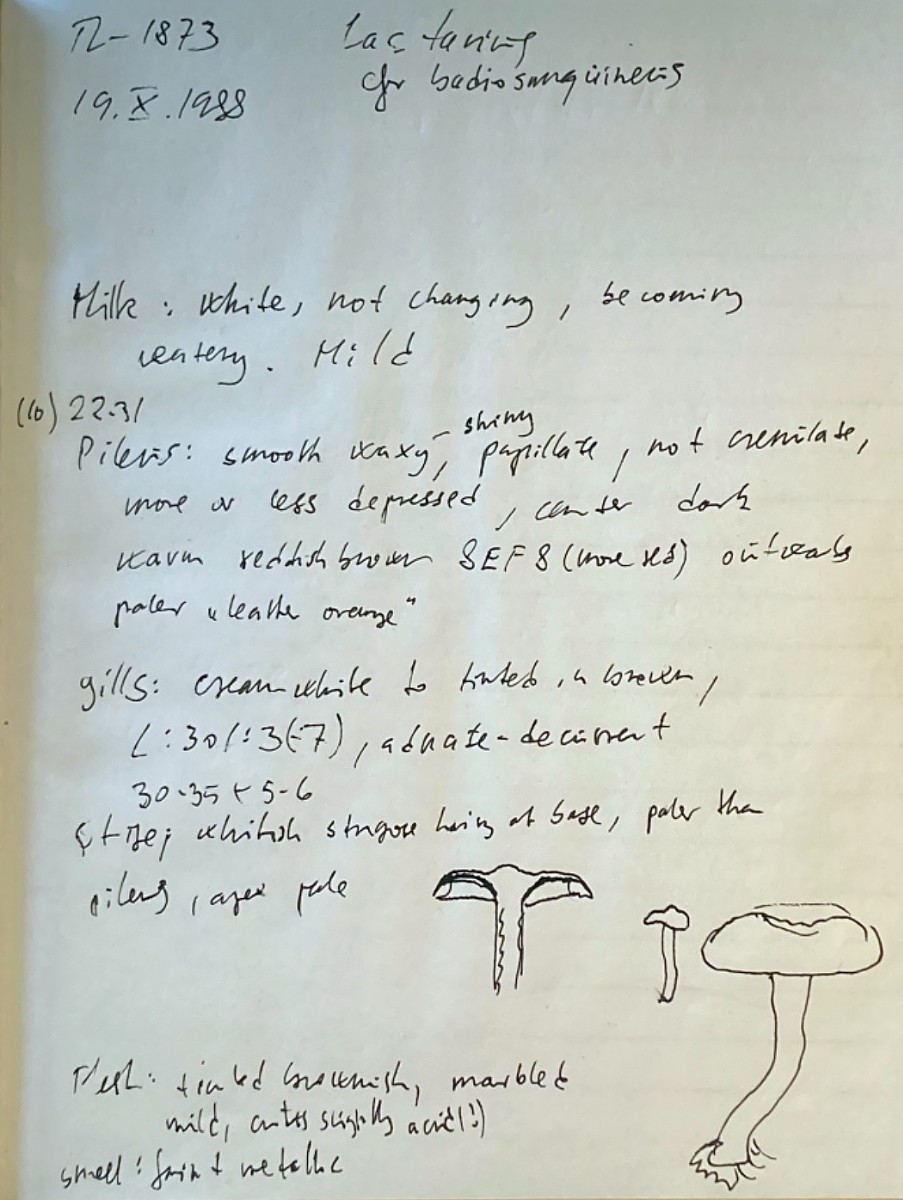 TL-1873 Lactarius
19.X.1988 cfr badiosanguineus
Milk: white, not changing, becoming
watery. Mild
(10) 22-31
shiny
Pileus: smooth waxy, papillate, not crenulate,
more or less depressed, center dark
warm reddish brown 8EF8 (more red) outwards
paler "leather orange"
gills: cream white to tinted in brown,
L:30 l:3(-7), adnate-decurrent
30-35 x 5-6
Stipe; whitish strigose hairs at base, paler than
pileus, apex pale
Flesh: tinted brownish, marbled
mild, slightly acid(!)
smell: faint metallic